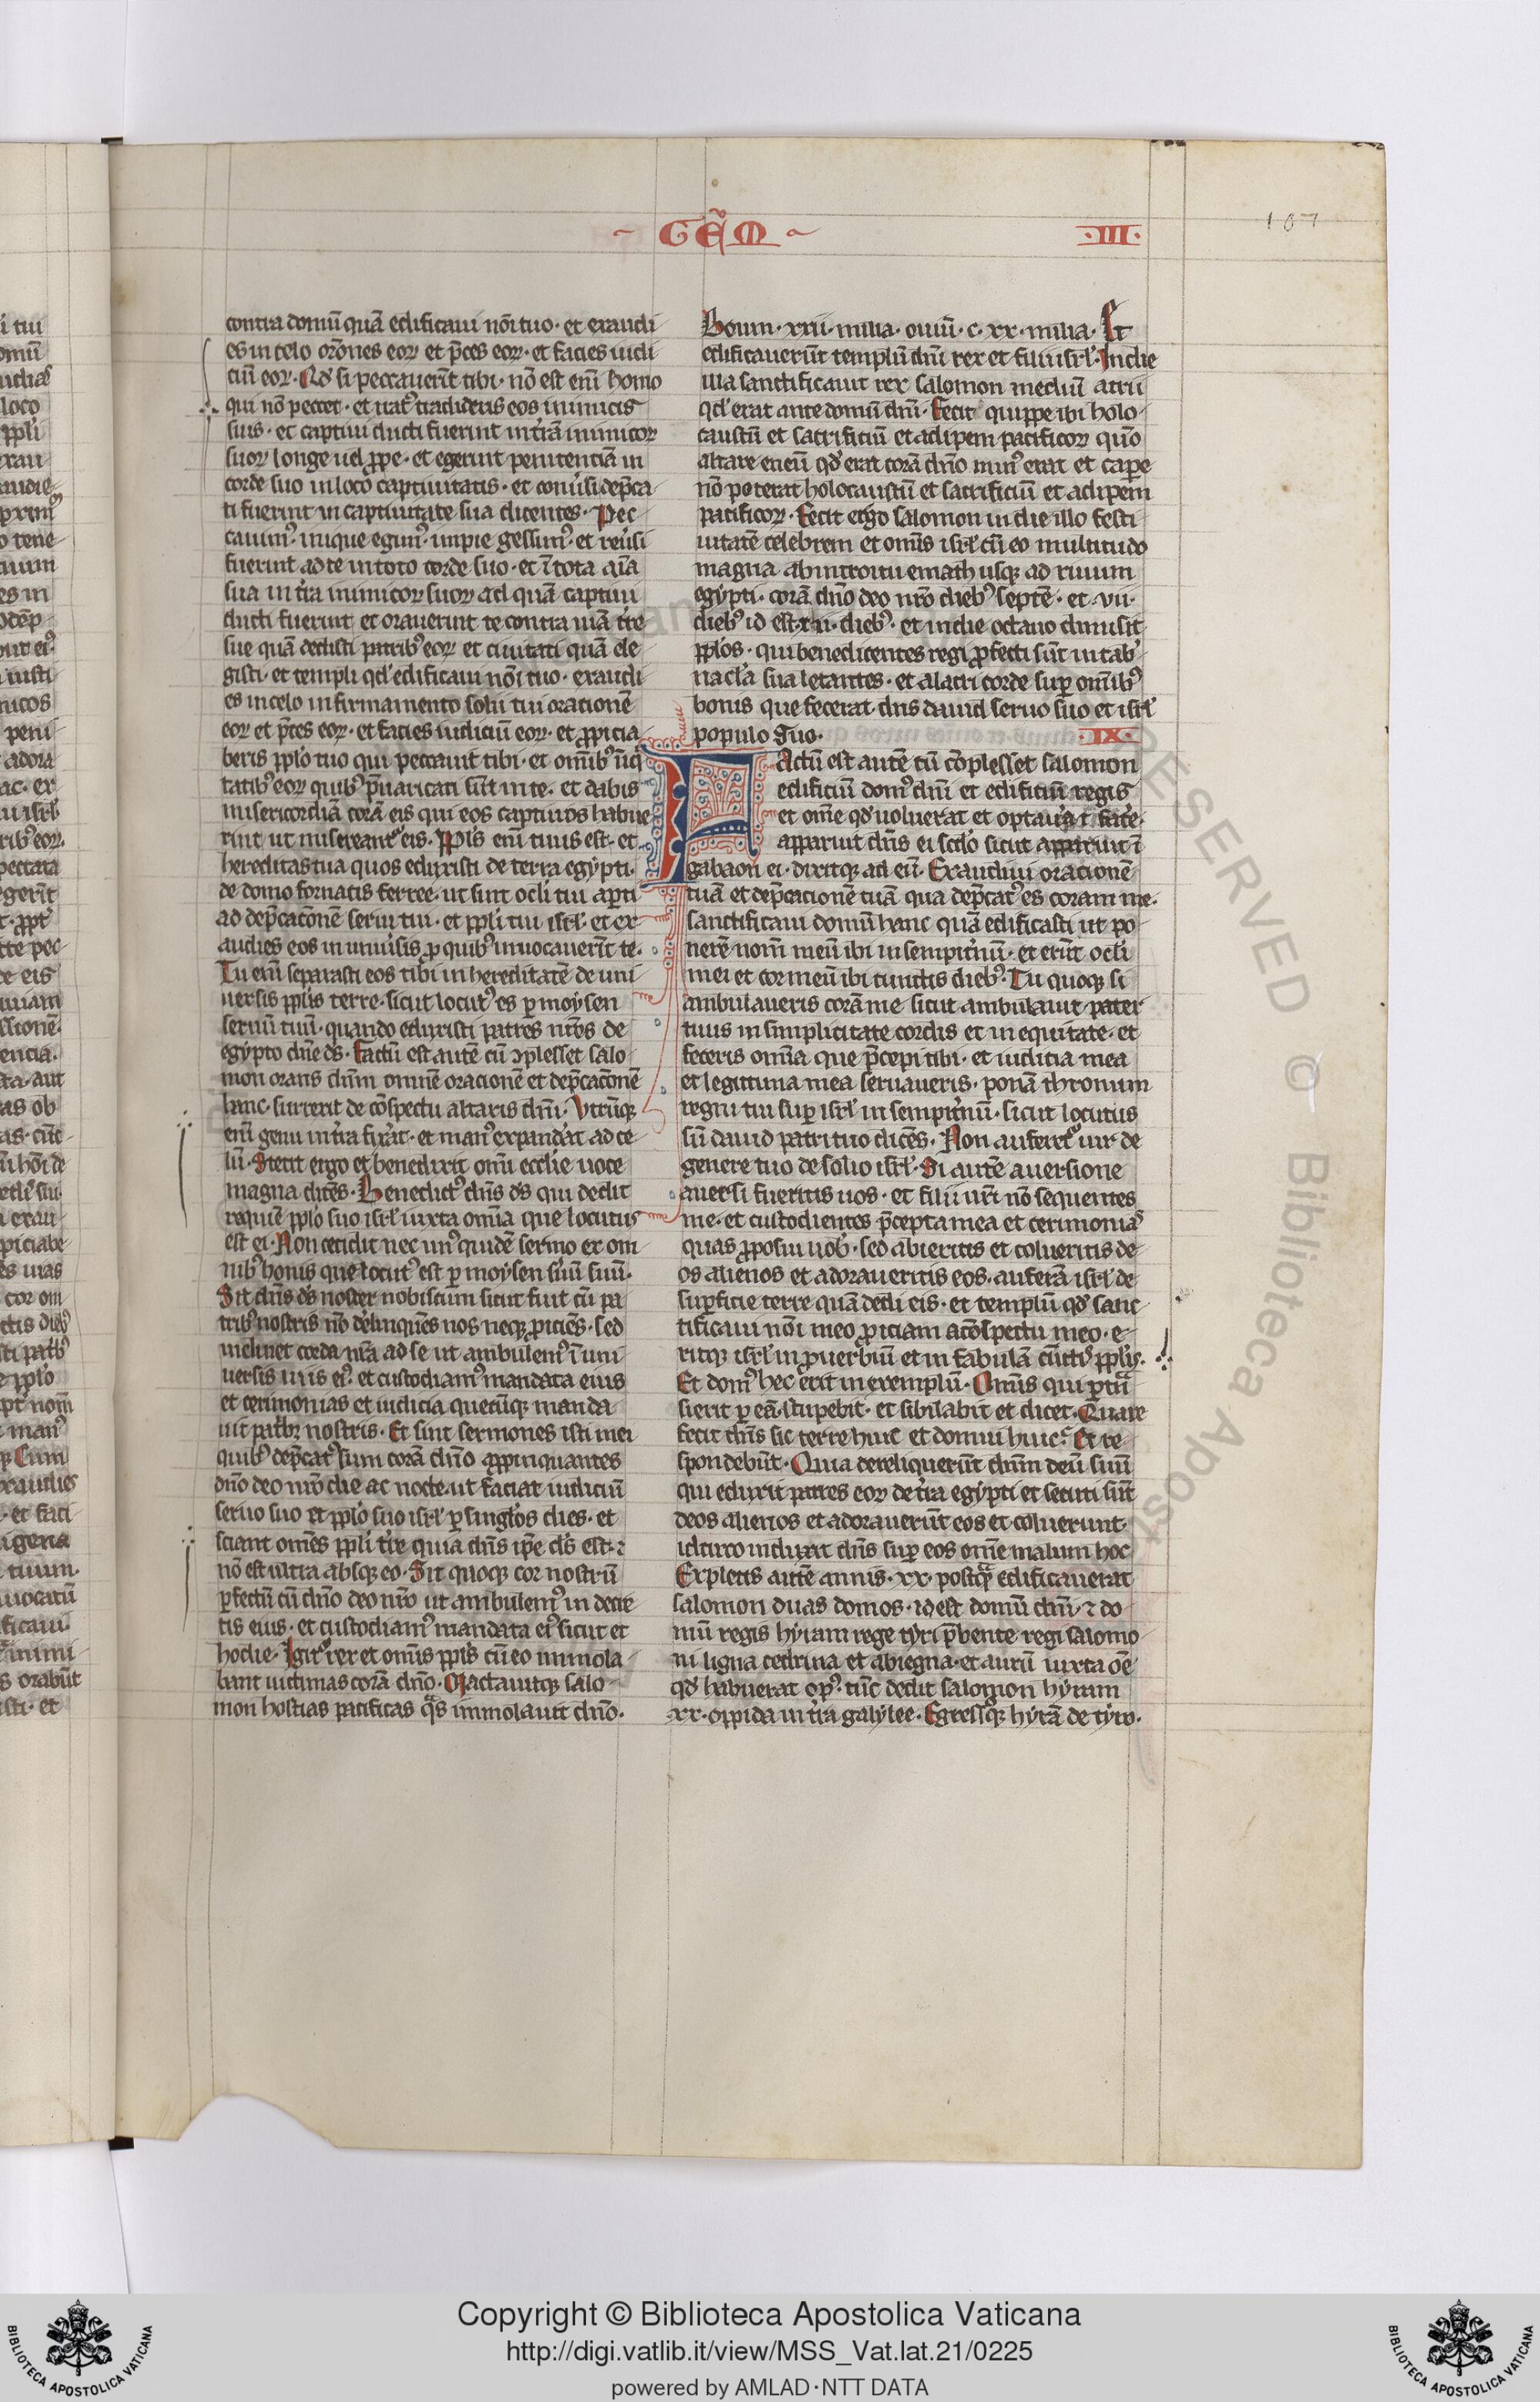 GEM
III
107
contra domū quā edificaui noī tuo · et exaudi
es in celo orōnes eoꝝ et p̄ces eoꝝ · et facies iudi
ciū eoꝝ · Qđ si peccauerīt tibi · nō est enī homo
qui nō peccet · et iratꝰ tradideris eos inimicis
suis · et captiui ducti fuerint in trā̄ inimicoꝝ
suoꝝ longe uel ꝓpe · et egerint penitentiā in
corde suo in loco captiuitatis · et conūsi dep̄ca
ti fuerint in captiuitate sua dicentes · Pec
cauimꝰ inique egimꝰ impie gessimꝰ et reūsi
fuerint ad te in toto corde suo · et ī tota aīa
sua in tr̄a inimicoꝝ suoꝝ ad quā captiui
ducti fuerint et orauerint te contra uiā tr̄e
sue quā dedisti patribꝰ eoꝝ et ciuitati quā ele
gisti · et templi qđ edificaui nōi tuo · exaudi
es in celo in firmamento solii tui orationē
eoꝝ et p̄ces eoꝝ · et facies iudiciū eoꝝ · et ꝓpicia
beris ppl̄o tuo qui peccauit tibi · et omībꝰ īiq
tatibꝰ eoꝝ quibꝰ p̄uaricati sūt in te · et dabis
misericordiā corā eis qui eos captiuos habue
rint ut misereantꝰ eis · Ppl̄s enī tuus est · et
hereditas tua quos eduxisti de terra egypti ·
de domo fornacis ferree · ut sint ocl̄i tui apti
ad dep̄catōnē serui tui · et ppl̄i tui isrl̄ · et ex
audies eos in uniūsis ꝓ quibꝰ inuocauerīt te ·
Tu enī separasti eos tibi in hereditatē de uni
uersis ppl̄is terre · sicut locutꝰ es ꝑ moysen
seruū tuū · quando eduxisti patres nr̄os de
egypto dn̄e ds̄ · Factū est autē cū ꝯplesset salo
mon orans dn̄m omnē oracionē et dep̄catōnē
hanc · surrexit de cōspectu altaris dn̄i · Utrūqꝫ
enī genu in tr̄a fixat · et manꝰ expandat ad ce
lū · Stetit ergo et benedixit omī eccl̄ie uoce
magna dicēs · Benedictꝰ dn̄s ds̄ qui dedit
requiē ppl̄o suo isrl̄ iuxta omīa que locutus
est ei · Non cecidit nec unꝰ quidē sermo ex om
nibꝰ bonis que locutꝰ est ꝑ moysen s̄uū suū ·
Sit dn̄s ds̄ noster nobiscum sicut fuit cū pa
tribꝰ nostris nō delinquēs nos neqꝫ ꝓiciēs · sed
inclinet corda nr̄a ad se ut ambulemꝰ ī uni
uersis uiis eiꝰ et custodiamꝰ mandata eius
et cerimonias et iudicia quecūqꝫ manda
uit patribꝫ nostris · Et sint sermones isti mei
quibꝰ dep̄catꝰ sum corā dn̄o appinquantes
dn̄o deo nr̄o die ac nocte ut faciat iudiciū
seruo suo et ppl̄o suo isrl̄ ꝑ singl̄os dies · et
sciant omēs ppl̄i tr̄e quia dn̄s ip̄e ds̄ est · ⁊
nō est ultra absqꝫ eo · Sit quoqꝫ cor nostrū
ꝑfectū cū dn̄o deo nr̄o ut ambulemꝰ in decre
tis eius · et custodiamꝰ mandata eiꝰ sicut et
hodie · Igitꝰ rex et omīs ppl̄s cū eo immola
bant uictimas corā dn̄o · Mactauitqꝫ salo
mon hostias pacificas qͣs immolauit dn̄o ·
Boum · xxii · milia · ouiū · c · xx · milia · Et
edificauerūt templū dn̄i rex et filii isrl̄ · In die
illa sanctificauit rex salomon mediū atrii
qđ erat ante domū dn̄i · Fecit quippe ibi holo
caustū et sacrificiū et adipem pacificoꝝ quō
altare eneū qđ erat corā dn̄o minꝰ erat et cape
nō poterat holocaustū et sacrificiū et adipem
pacificoꝝ · Fecit ergo salomon in die illo festi
uitatē celebrem et omīs isrl̄ cū eo multitudo
magna ab introitu emath usqꝫ ad riuum
egypti · corā dn̄o deo nr̄o diebꝰ septē · et · vii ·
diebꝰ id est xiiii · diebꝰ · et in die octauo dimisit
ppl̄os · qui benedicentes regi ꝓfecti sūt in tab̄
nacl̄a sua letantes · et alacri corde suꝑ omībꝰ
bonis que fecerat dn̄s dauid seruo suo et isrl̄
populo suo ·
IX
Factū est autē cū cōplesset salomon
edificiū domꝰ dn̄i et edificiū regis
et omē qđ uoluerat et optauerat facere ·
apparuit dn̄s ei scd̄o sicut apparuit ī
gabaon ei · dixitqꝫ ad eū · Exaudiui orationē
tuā et dep̄cacionē tuā qua dep̄catꝰ es coram me ·
sanctificaui domū hanc quā edificasti ut po
nerē nom̄ meū ibi in sempit̄nū · et erūt ocl̄i
mei et cor meū ibi cunctis diebꝰ · Tu quoqꝫ si
ambulaueris corā me sicut ambulauit pater
tuus in simplicitate cordis et in equitate · et
feceris omīa que p̄cepi tibi · et iudicia mea
et legittima mea seruaueris · ponā thronum
regni tui suꝑ isrl̄ in sempit̄nū · sicut locutus
sū dauid patri tuo dicēs · Non auferetꝰ uir de
genere tuo de solio isrl̄ · Si autē auersione
auersi fueritis uos · et filii ur̄i nō sequentes
me · et custodientes p̄cepta mea et cerimonias
quas ꝓposui uob̄ · sed abieritis et colueritis de
os alienos et adoraueritis eos · auferā isrl̄ de
suꝑficie terre quā dedi eis · et templū qđ sanc
tificaui nōi meo ꝓiciam a cōspectu meo · e
ritqꝫ isrl̄ in ꝓuerbiū et in fabulā cūctis ppl̄is ·
Et domꝰ hec erit in exemplū · Omīs qui ꝑtrā
sierit ꝑ eā · stupebit · et sibilabit et dicet · Quare
fecit dn̄s sic terre huic et domui huic · Et re
spondebūt · Quia dereliquerūt dn̄m deū suū
qui eduxit patres eoꝝ de tr̄a egypti et secuti sūt
deos alienos et adorauerūt eos et coluerunt ·
idcirco induxit dn̄s suꝑ eos omē malum hoc
Expletis autē annis · xx · postqͣ edificauerat
salomon duas domos · id est domū dn̄i · ⁊ do
mū regis hyram rege tyri p̄bente regi salomo
ni ligna cedrina et abiegna · et aurū iuxta oē
qđ habuerat opꝰ · tūc dedit salomon hyram
xx · oppida in tr̄a galylee · Egressꝰqꝫ hyrā de tyro ·
Copyright © Biblioteca Apostolica Vaticana
http://digi.vatlib.it/view/MSS_Vat.lat.21/0225
powered by AMLAD·NTT DATA
BIBLIOTECA APOSTOLICA VATICANA
BIBLIOTECA APOSTOLICA VATICANA